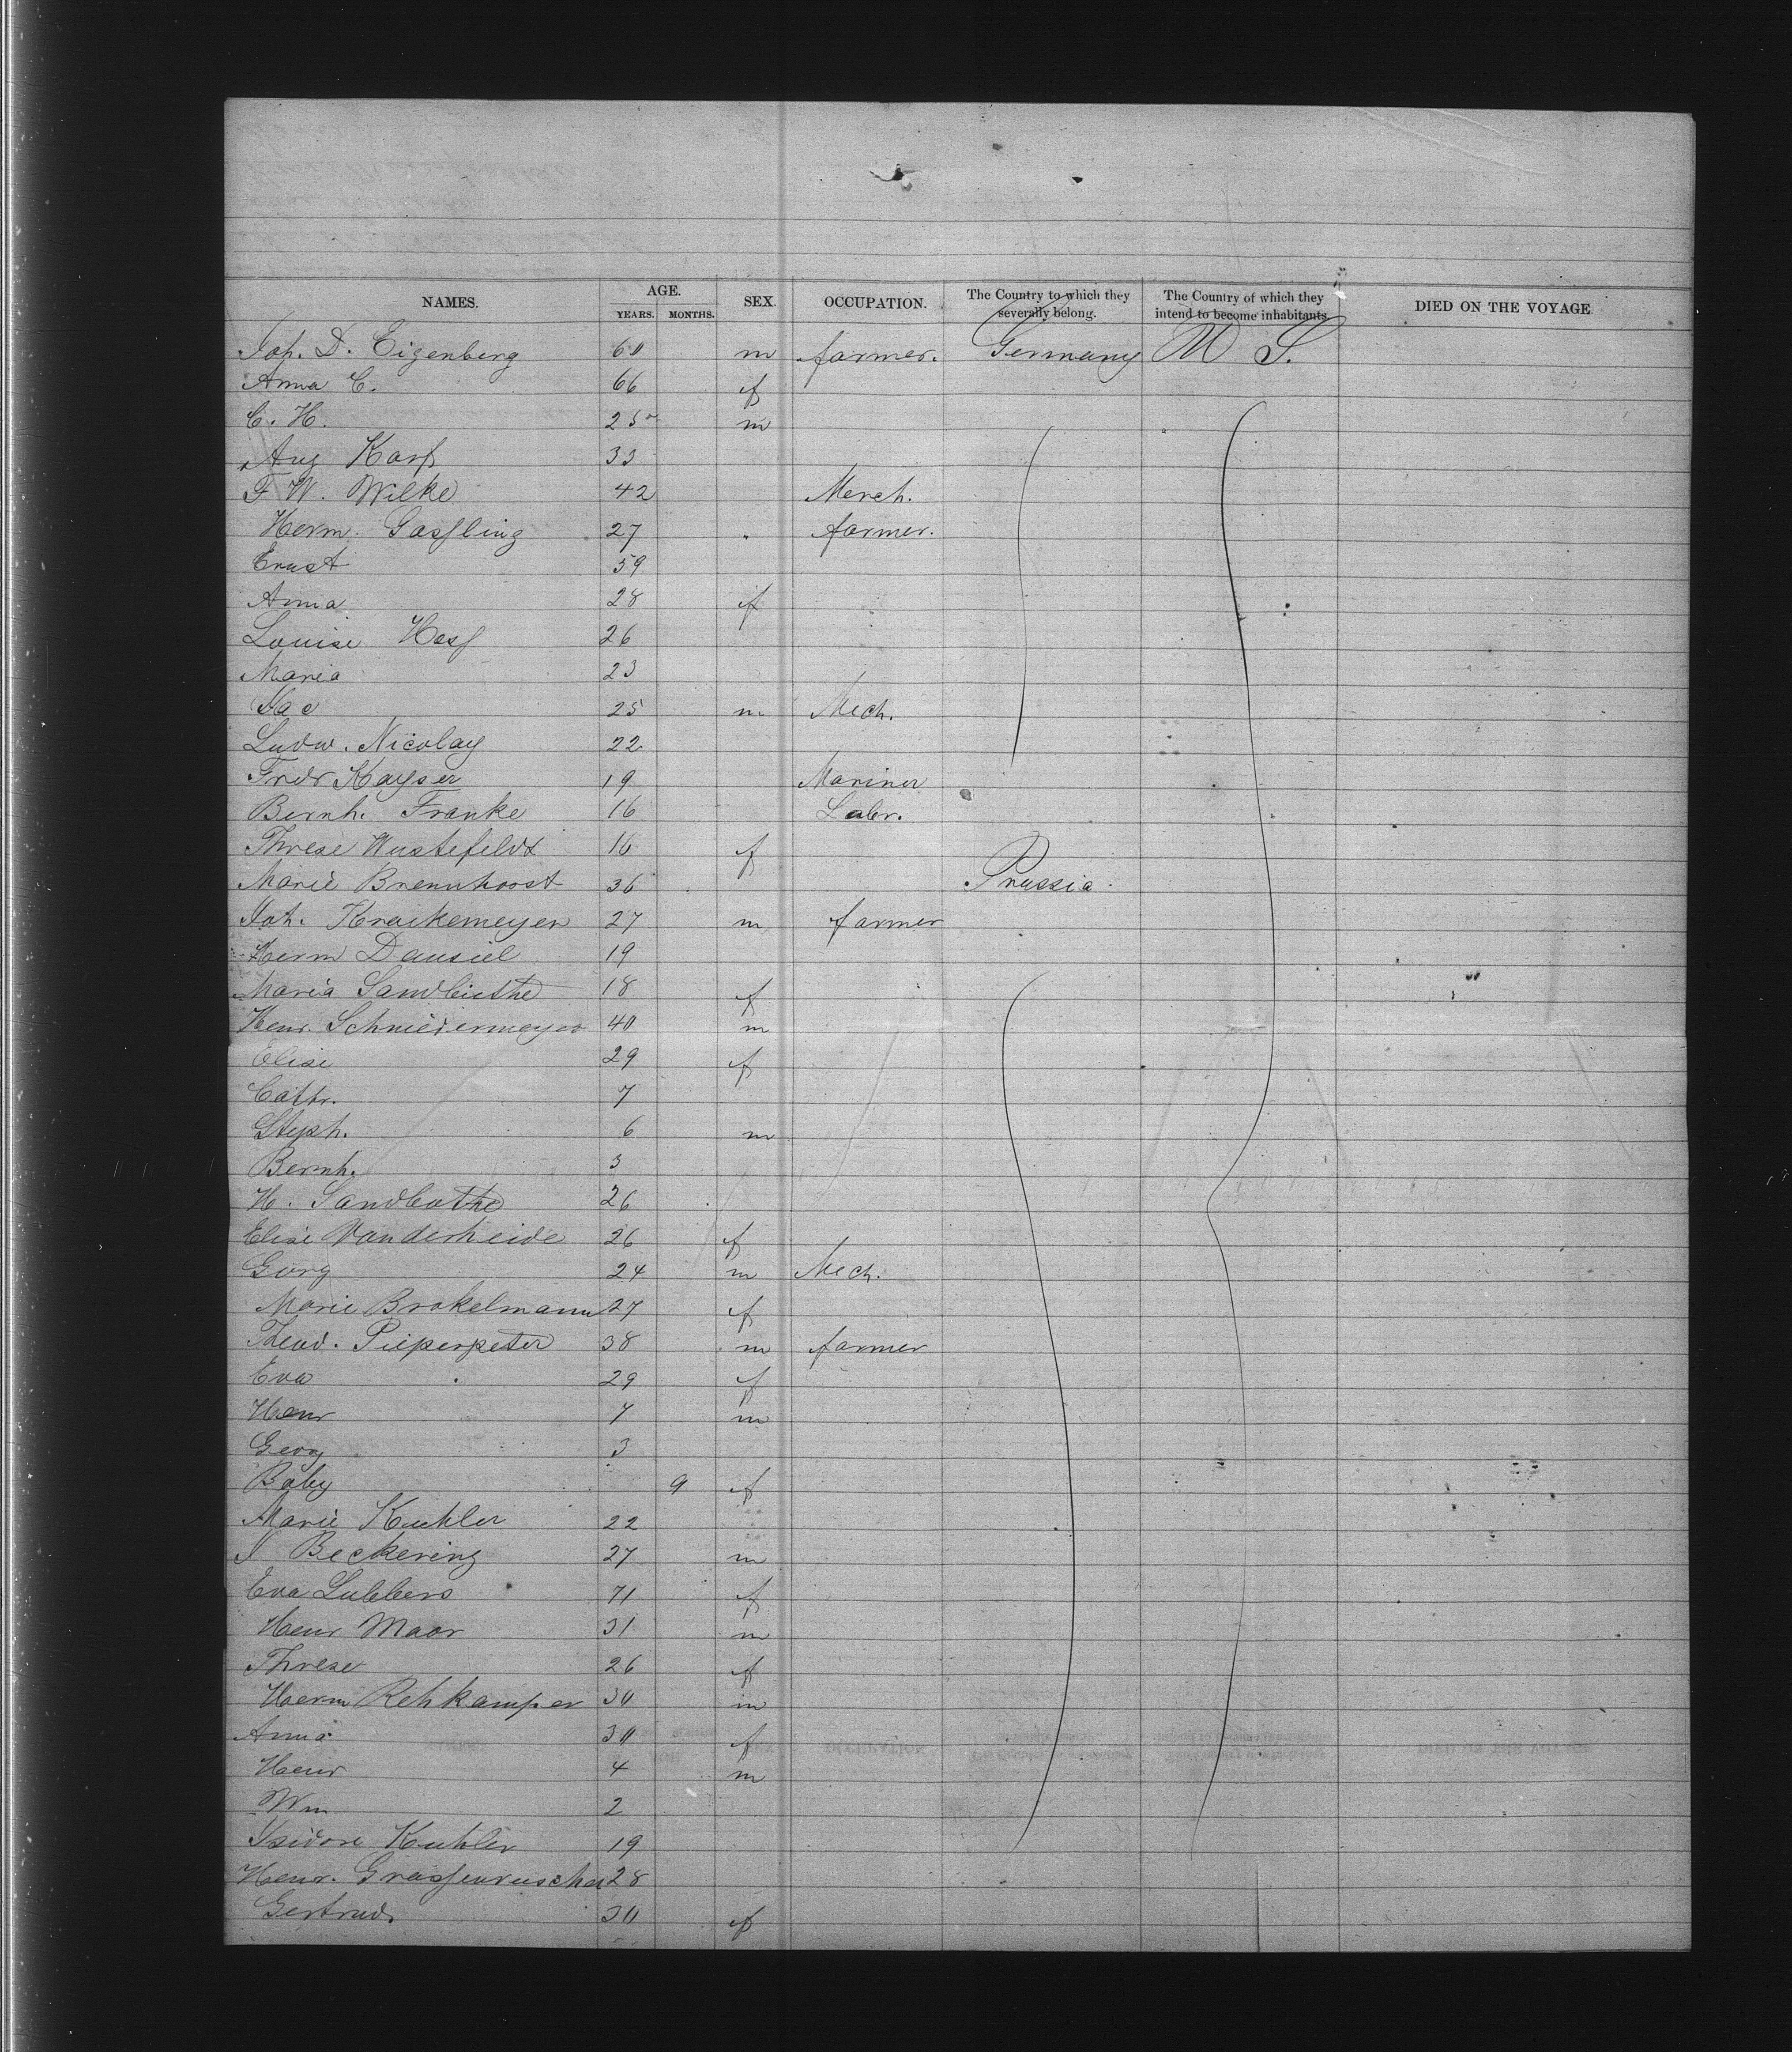 NAMES. AGE. SEX. OCCUPATION. The Country to which they severally belong. The Country of which they intend to become inhabitants. DIED ON THE VOYAGE
YEARS. MONTHS.
Joh. D. Eigenberg 60 m farmer. Germany U S.
Anna C. 66 f
C. H. 25 m
Aug Karp 33
F W. Wilke 42 Merch.
Herm. Gassling 27 " farmer.
Ernst 59
Anna 28 f
Louise Hess 26
Maria 23
25 m Mech.
Ludw. Nicolay 22
Fredr Kayser 19 Mariner
Bernh. Franke 16 Labr.
Threse Wustefeldt 16 f
Marie Brennhorst 36 Prussia.
Joh. Krackemeyer 27 m farmer
Herm Dausiel 19
Maria Sandbothe 18 f
Henr. Schniedermeyer 40 m
Elise 29 f
Cathr. 7
Steph. 6 m
Bernh. 3
H. Sandbothe 26
Elise Vanderheide 26 f
Georg 24 m Mech.
Marie Brokelmann 27 f
Theod. Pieperpeter 38 m farmer
Eva 29 f
Henr 7 m
Georg 3
Baby 9 f
Marie Kuhler 22
J Beckering 27 m
Eva Lubbers 71 f
Henr Maor 31 m
Threse 26 f
Herm Rehkamper 30 m
Anna 30 f
Henr 4 m
Wm 2
Isidore Kuhler 19
Henr. 28
Gertrud. 30 f